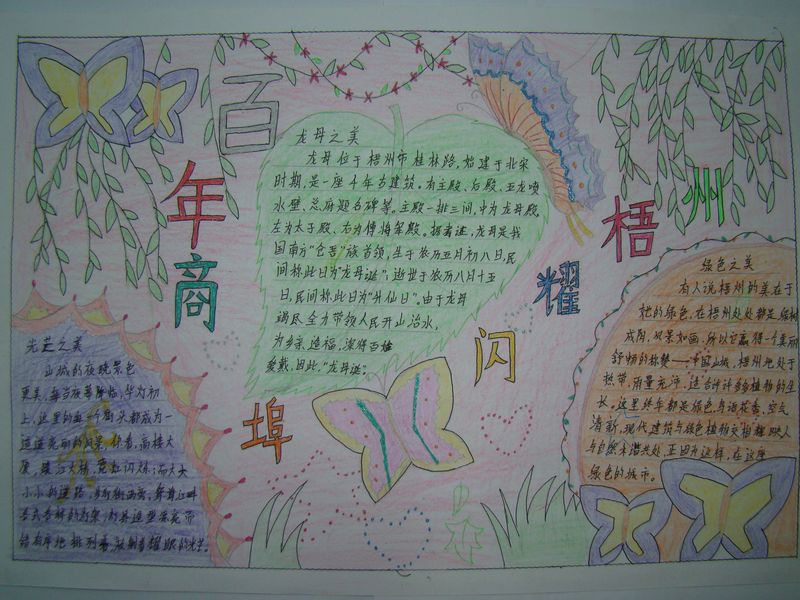 百
年
商
埠
闪
耀
梧
州
龙母之美
龙母位于梧州市桂林路,始建于北宋
时期,是一座千年古建筑。有主殿、后殿、五龙喷
水壁、总府题名碑等。主殿一排三间,中为龙母殿,
左为太子殿、右为傅将军殿。据考证,龙母是我
国南方"仓吾"族首领,生于农历五月初八日,民
间称此日为"龙母诞";逝世于农历八月十五
日,民间称此日为"升仙日"。由于龙母
竭尽全力带领人民开山治水,
为乡亲造福,深得百姓
爱戴,因此,"龙母诞"。
光芒之美
山城的夜晚景色
更美,每当夜幕降临,华灯初
上,这里的每一个街头都成为一
道道亮丽的风景,你看,高楼大
厦、鸳江大桥,霓虹闪烁;而大大
小小的道路
绿色之美
有人说梧州的美在于
她的绿色,在梧州处处都是绿树
成阴,风景如画,所以它赢得一个美丽
舒畅的称赞——中国山城。梧州地处于
热带,雨量充沛,适合许许多多植物的生
长。这里终年都是绿色,鸟语花香,空气
清新,现代建筑与绿色植物交相辉映,人
与自然和谐共处,正因为这样,在这座
绿色的城市。